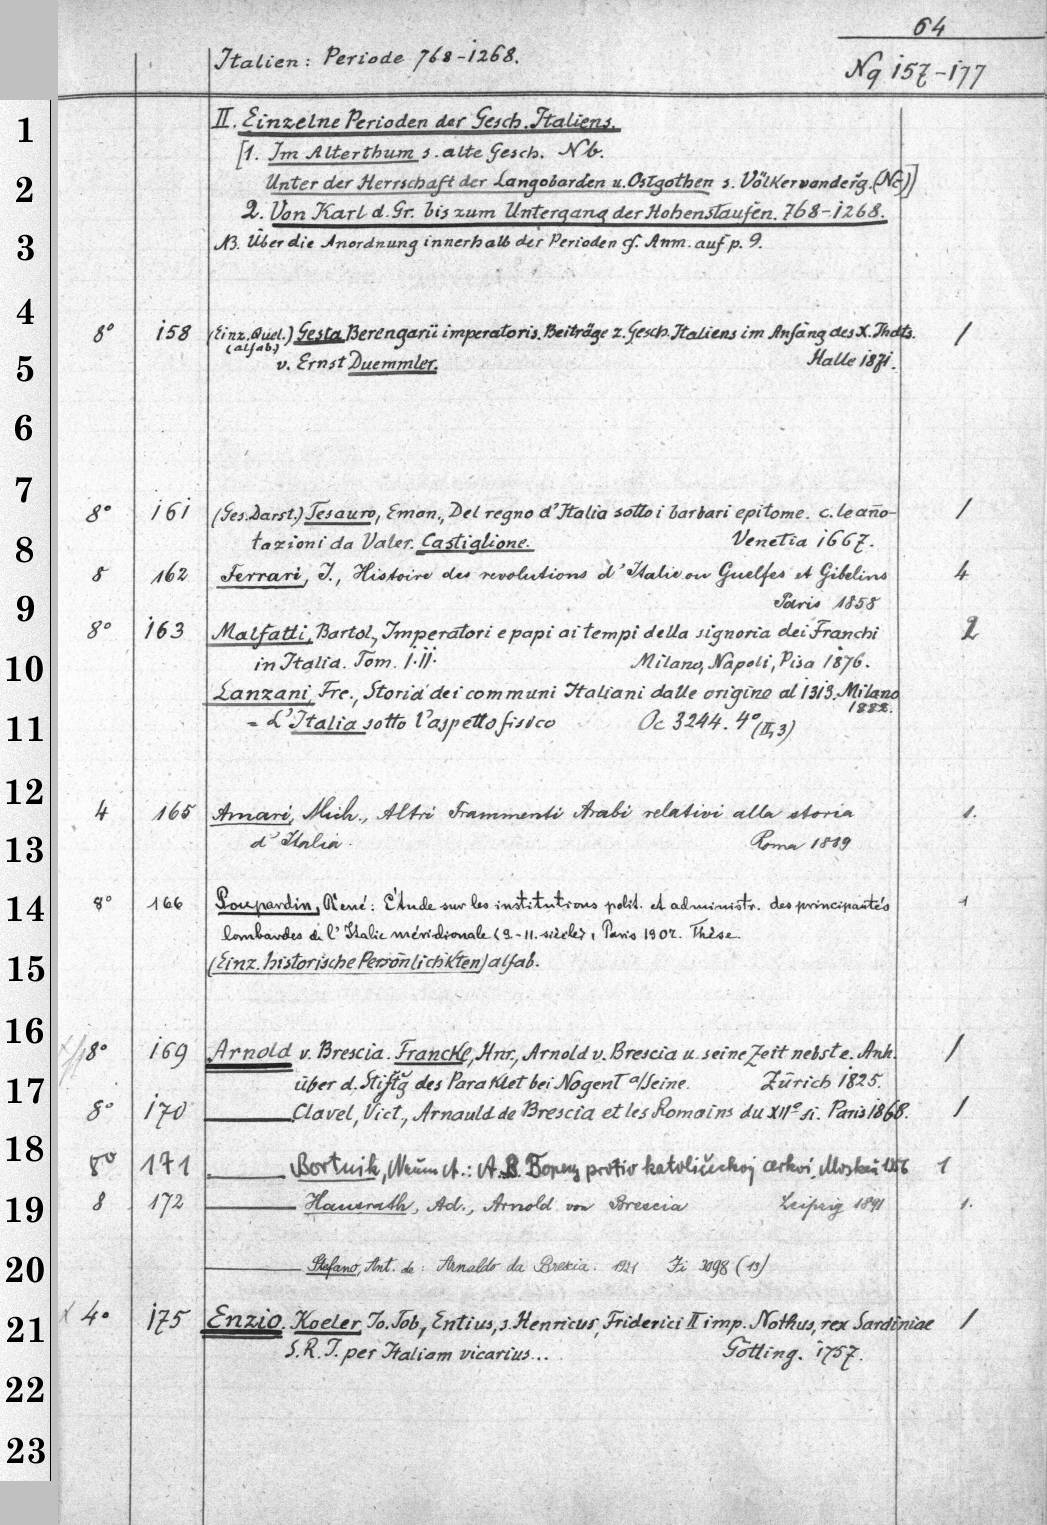 64
Italien: Periode 768-1268.
Nq 157-177
1
II. Einzelne Perioden der Gesch. Italiens.
[1. Im Alterthum s. alte Gesch. Nb.
2
Unter der Herrschaft der Langobarden u. Ostgothen s. Völkerwanderg. (Nc)]
2. Von Karl d. Gr. bis zum Untergang der Hohenstaufen. 768-1268.
3
NB. Über die Anordnung innerhalb der Perioden cf. Anm. auf p. 9.
4
8° 158 (Einz. Quel.) Gesta Berengarii imperatoris. Beiträge z. Gesch. Italiens im Anfang des X. Jhdts. 1
(alfab)
5
v. Ernst Duemmler. Halle 1871.
6
7
8° 161 (Ges. Darst.) Tesauro, Eman., Del regno d'Italia sotto i barbari epitome. c. le año- 1
8
tazioni da Valer. Castiglione. Venetia 1667.
8 162 Ferrari, J., Histoire des revolutions d'Italie ou Guelfes et Gibelins 4
9
Paris 1858
8° 163 Malfatti, Bartol., Imperatori e papi ai tempi della signoria dei Franchi 2
10
in Italia. Tom. I.II. Milano, Napoli, Pisa 1876.
Lanzani, Frc., Storia dei communi Italiani dalle origine al 1313. Milano
1882.
11
= L'Italia sotto l'aspetto fisico Oc 3244. 4° (II,3)
12
4 165 Amari, Mich., Altri Frammenti Arabi relativi alla storia 1.
13
d'Italia. Roma 1889
14
8° 166 Poupardin, René: Étude sur les institutions polit. et administr. des principautés 1
lombardes de l'Italie méridionale (9.-11. siècle), Paris 1907. Thèse.
15
(Einz. historische Persönlichkten) alfab.
16
8° 169 Arnold v. Brescia. Francke, Hnr., Arnold v. Brescia u. seine Zeit nebst e. Anh. 1
17
über d. Stiftg des Paraklet bei Nogent a/Seine. Zürich 1825.
8° 170 Clavel, Vict., Arnauld de Brescia et les Romains du XIIe si. Paris 1868. 1
18
8° 171 Bortnik, A.: A. protiv katoličeckoj cerkvi, 1956 1
19
8 172 Hausrath, Ad., Arnold von Brescia Leipzig 1891 1.
20
Stefano, Ant. de: Arnaldo da Brescia. 1921 Fi 3098 (19)
21
4° 175 Enzio. Koeler, Jo. Tob., Entius, s. Henricus, Friderici II imp. Nothus, rex Sardiniae 1
S.R.I. per Italiam vicarius... Götting. 1757.
22
23